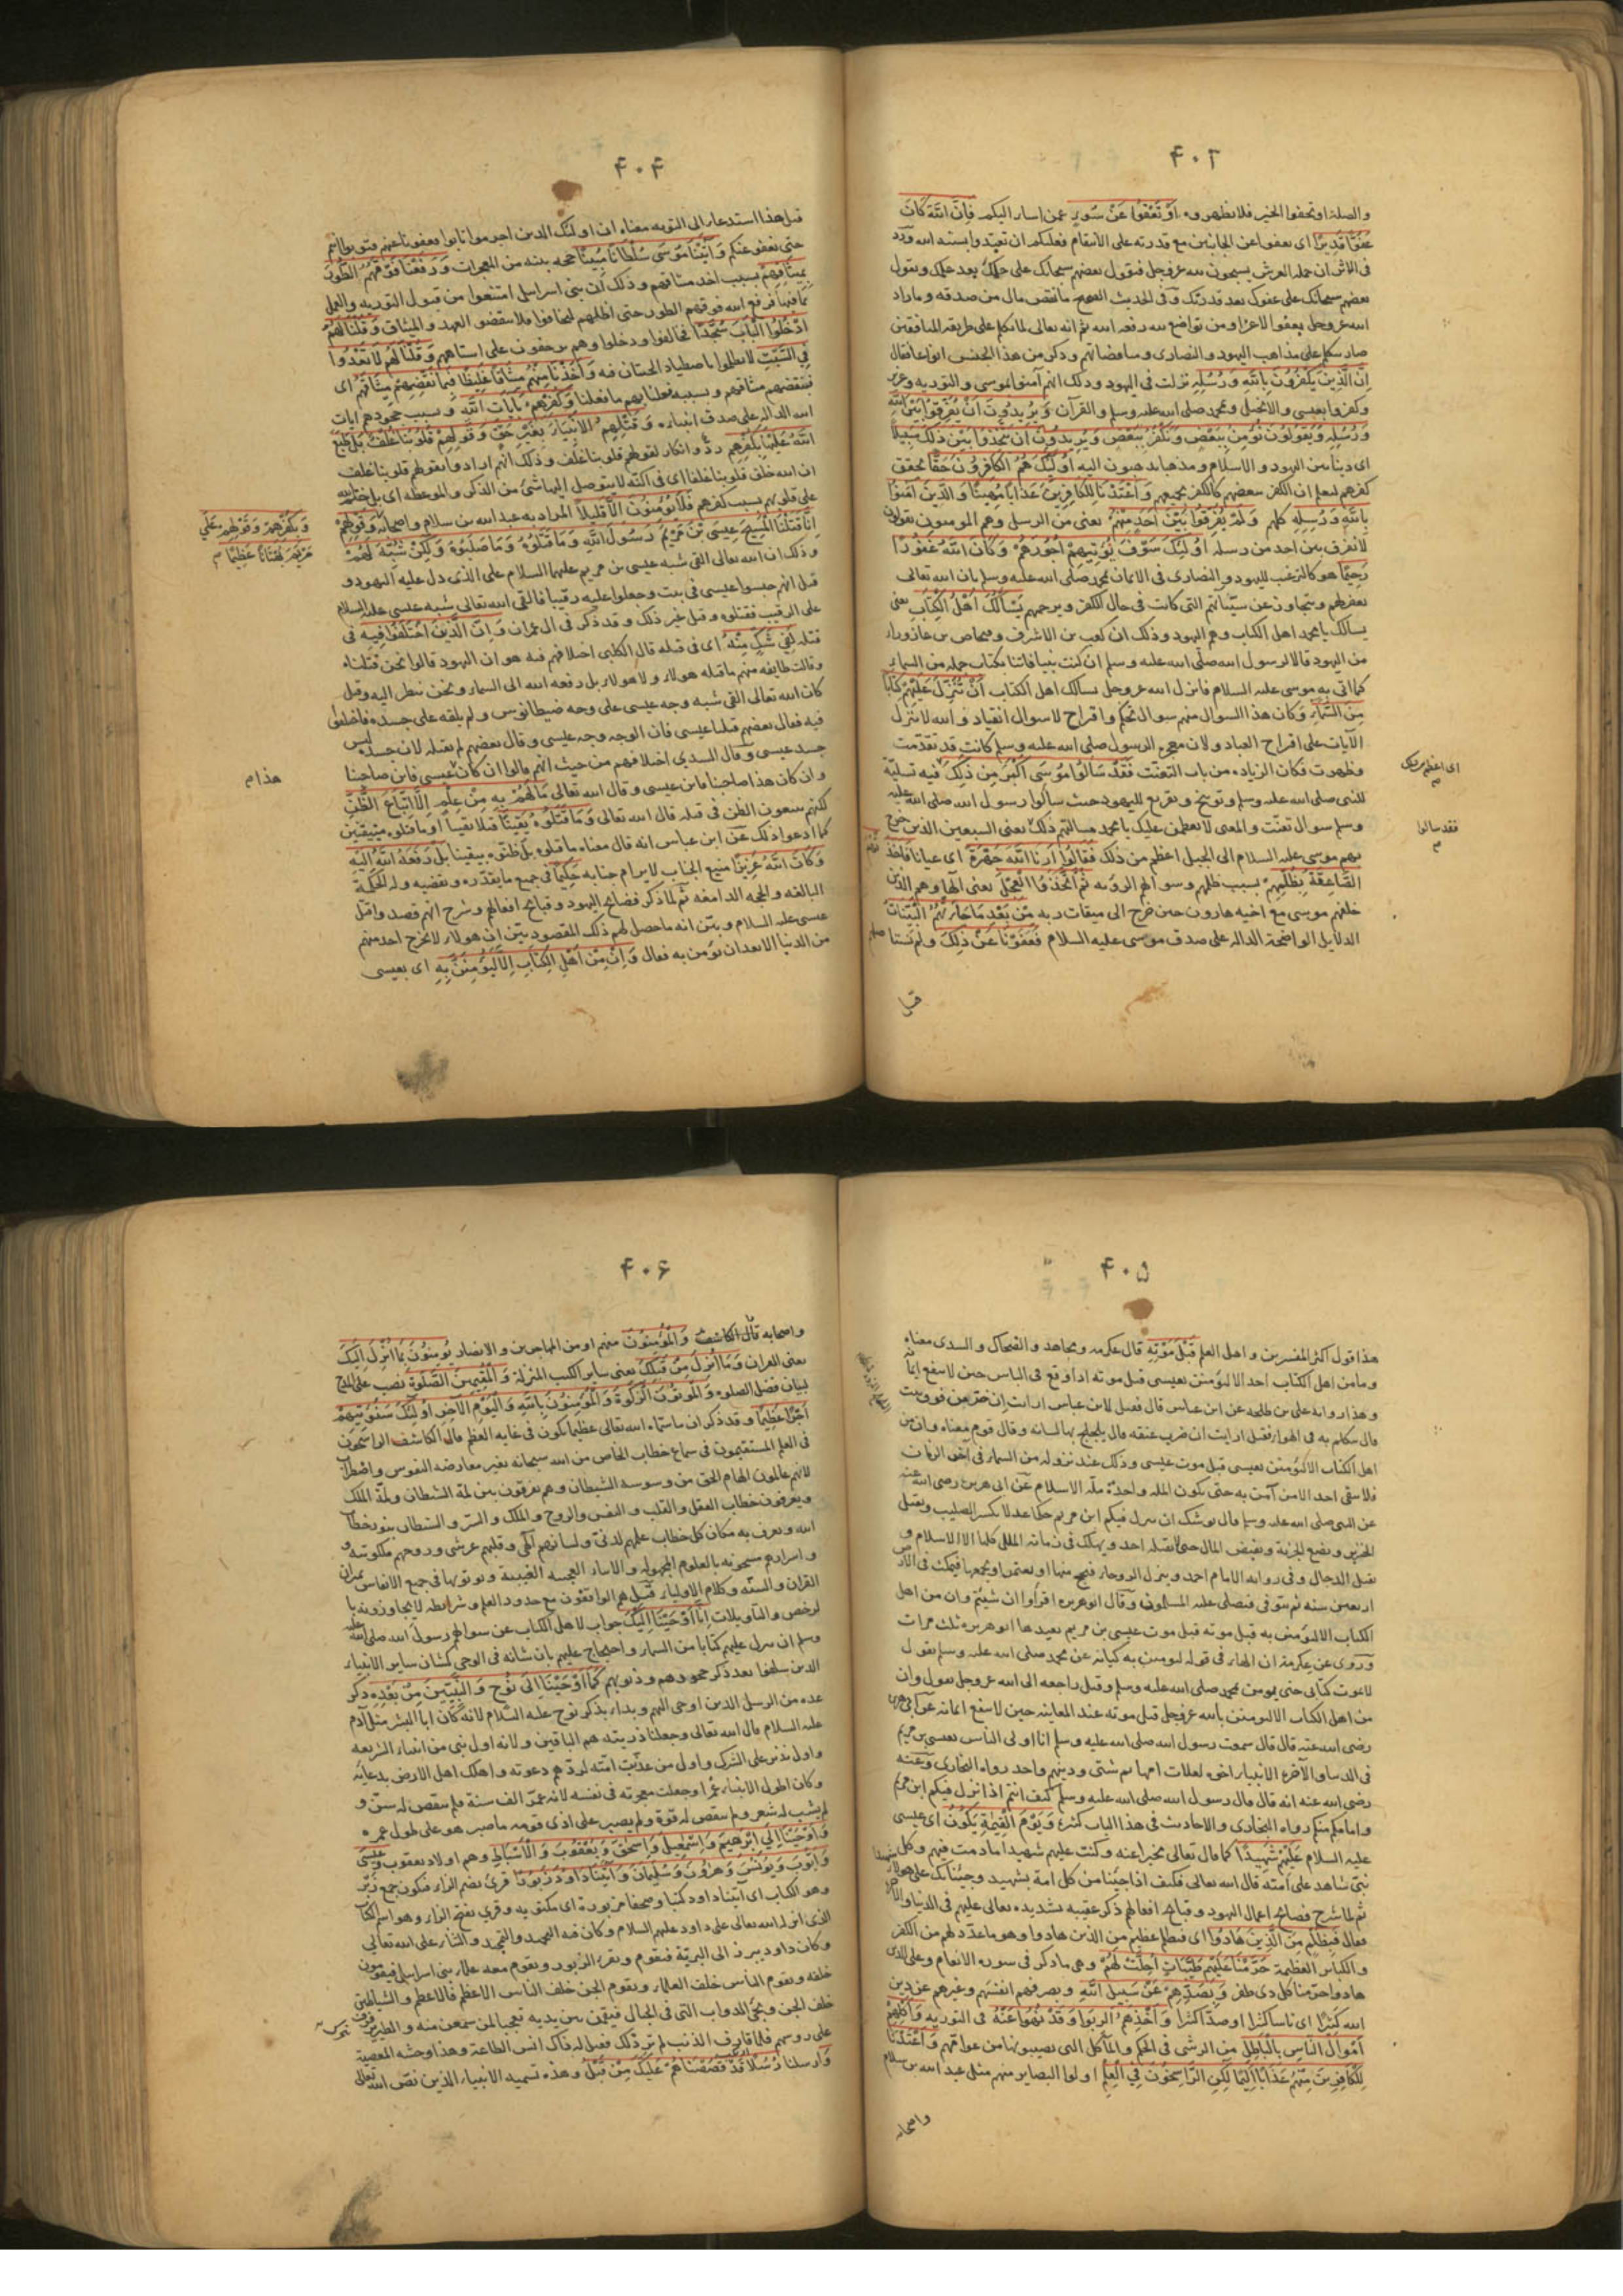 ۴۰۳
والصلة او تخفوا الخير فلا تظهروه او تعفوا عن سوء عمن اساء اليكم فان الله كان
عفوا قديرا اى يعفوا عن الجانين مع قدرته على الانتقام فعليكم ان تقيدوا بسنة الله وورد
فى الاثر ان حملة العرش يسبحون لله عز وجل فيقول بعضهم سبحانك على حلمك بعد علمك ويقول
بعضهم سبحانك على عفوك بعد قدرتك وفى الحديث الصحيح ما نقص مال من صدقة وما زاد
الله عز وجل بعفو الا عزا ومن تواضع لله رفعه الله ثم انه تعالى لما تكلم على طريقة المنافقين
صار يتكلم على مذاهب اليهود والنصارى ومناقضاتهم وذكر من هذا الجنس انواعا فقال
ان الذين يكفرون بالله ورسله نزلت فى اليهود وذلك انهم آمنوا بموسى والتوريه وعزير
وكفروا بعيسى والانجيل ومحمد صلى الله عليه وسلم والقرآن ويريدون ان يفرقوا بين الله
ورسله ويقولون نؤمن ببعض ونكفر ببعض ويريدون ان يتخذوا بين ذلك سبيلا
اى دينا بين اليهود والاسلام ومذهبا يذهبون اليه اولئك هم الكافرون حقا تحقق
كفرهم ليعلم ان الكفر ببعضهم كالكفر بجميعهم واعتدنا للكافرين عذابا مهينا والذين آمنوا
بالله ورسله كلهم ولم يفرقوا بين احد منهم يعنى من الرسل وهم المومنون يقولون
لا نفرق بين احد من رسله اولئك سوف نؤتيهم اجورهم وكان الله غفورا
رحيما هو كالترغيب لليهود والنصارى فى الايمان بمحمد صلى الله عليه وسلم بان الله تعالى
يغفر لهم ويتجاوز عن سيئاتهم التى كانت فى حال الكفر ويرحمهم يسألك اهل الكتاب يعنى
يسألك يا محمد اهل الكتاب وهم اليهود وذلك ان كعب بن الاشرف وفنحاص بن عازوراء
من اليهود قالا لرسول الله صلى الله عليه وسلم ان كنت نبيا فاتنا بكتاب جملة من السماء
كما اتى به موسى عليه السلام فانزل الله عز وجل يسألك اهل الكتاب ان تنزل عليهم كتابا
من السماء وكان هذا السوال منهم سوال تحكم واقتراح لا سوال انقياد والله لا ينزل
الآيات على اقتراح العباد ولان معجزة الرسول صلى الله عليه وسلم كانت قد تقدمت
وظهرت فكان الزيادة من باب التعنت فقد سألوا موسى اكبر من ذلك فيه تسلية
للنبى صلى الله عليه وسلم وتوبيخ وتقريع لليهود حيث سألوا رسول الله صلى الله عليه
وسلم سوال تعنت والمعنى لا تعظمن عليك يا محمد مسألتهم ذلك يعنى السبعين الذين خرج
بهم موسى عليه السلام الى الجبل اعظم من ذلك فقالوا ارنا الله جهرة اى عيانا فاخذتهم
الصاعقة بظلمهم بسبب ظلمهم وسوالهم الروية ثم اتخذوا العجل يعنى الها وهم الذين
خلفهم موسى مع اخيه هارون حين خرج الى ميقات ربه من بعد ما جاءتهم البينات
الدلايل الواضحة الدالة على صدق موسى عليه السلام فعفونا عن ذلك ولم نستاصلهم
اى اعظم من ذلك
فقد سالوا
۴۰۴
قيل هذا استدعاء الى التوبة معناه ان اولئك الذين اجرموا تابوا فعفونا عنهم فتوبوا انتم
حتى نعفو عنكم وآتينا موسى سلطانا مبينا حجة بينة من المعجزات ورفعنا فوقهم الطور
بميثاقهم بسبب اخذ ميثاقهم وذلك ان بنى اسرائيل امتنعوا من قبول التورية والعمل
بما فيها فرفع الله فوقهم الطور حتى اظلهم ليخافوا فلا ينقضوا العهد والميثاق وقلنا لهم
ادخلوا الباب سجدا فخالفوا ودخلوا وهم يزحفون على استاههم وقلنا لهم لا تعدوا
فى السبت لا تظلموا باصطياد الحيتان فيه واخذنا منهم ميثاقا غليظا فبما نقضهم ميثاقهم اى
فبنقضهم ميثاقهم وبسببه فعلنا بهم ما فعلنا وكفرهم بآيات الله وبسبب جحودهم ايات
الله الدالة على صدق انبياءه وقتلهم الانبياء بغير حق وقولهم قلوبنا غلف بل طبع
الله عليها بكفرهم رد وانكار لقولهم قلوبنا غلف وذلك انهم ارادوا بقولهم قلوبنا غلف
ان الله خلق قلوبنا غلفا اى فى اكنة لا يتوصل اليها شئ من الذكر والموعظة اى بل ختم الله
على قلوبهم بسبب كفرهم فلا يؤمنون الا قليلا المراد به عبد الله بن سلام واصحابه وقولهم
انا قتلنا المسيح عيسى بن مريم رسول الله وما قتلوه وما صلبوه ولكن شبه لهم
وذلك ان الله تعالى القى شبه عيسى بن مريم عليهما السلام على الذى دل عليه اليهود و
قيل انهم حبسوا عيسى فى بيت وجعلوا عليه رقيبا فالقى الله تعالى شبه عيسى عليه السلام
على الرقيب فقتلوه وقيل غير ذلك وقد ذكر فى ال عمران وان الذين اختلفوا فيه فى
قتله لفى شك منه اى فى قتله قال الكلبى اختلافهم فيه هو ان اليهود قالوا نحن قتلناه
وقالت طايفة منهم ما قتله هولاء ولا هولاء بل رفعه الله الى السماء ونحن ننظر اليه وقيل
كان الله تعالى القى شبه وجه عيسى على وجه ضيطانوس ولم يلقه على جسده فاختلفوا
فيه فقال بعضهم قتلنا عيسى فان الوجه وجه عيسى وقال بعضهم لم نقتله لان جسده ليس
جسد عيسى وقال السدى اختلافهم من حيث انهم قالوا ان كان عيسى فاين صاحبنا
وان كان هذا صاحبنا فاين عيسى وقال الله تعالى ما لهم به من علم الا اتباع الظن
لكنهم يتبعون الظن فى قتله قال الله تعالى وما قتلوه يقينا قتلا يقينا او ما قتلوه متيقنين
كما ادعوا ذلك عن ابن عباس انه قال معناه ما قتلوه بل ظنوه يقينا بل رفعه الله اليه
وكان الله عزيزا منيع الجناب لا يرام جنابه حكيما فى جميع ما يقدره ويقضيه وله الحكمة
البالغة والحجة الدامغة ثم لما ذكر فضايح اليهود و قبايح افعالهم وشرح انهم قصدوا قتل
عيسى عليه السلام وبين انه ما حصل لهم ذلك المقصود بين ان هولاء لا يخرج احد منهم
من الدنيا الا بعد ان يؤمن به فقال وان من اهل الكتاب الا ليؤمنن به اى بعيسى
وبكفرهم وقولهم على
مريم بهتانا عظيما م
هذا م
۴۰۵
هذا قول اكثر المفسرين واهل العلم قبل موته قال عكرمة ومجاهد والضحاك والسدى معناه
وما من اهل الكتاب احد الا ليؤمنن بعيسى قبل موته اذا وقع فى الباس حين لا ينفع ايمانه
وهذا رواية على بن طلحة عن ابن عباس قال فقيل لابن عباس ارايت ان خر من فوق بيت
قال يتكلم به فى الهواء فقيل ارايت ان ضرب عنقه قال يلجلج بها لسانه وقال قوم معناه وان من
اهل الكتاب الا ليؤمنن بعيسى قبل موت عيسى وذلك عند نزوله من السماء فى آخر الزمان
فلا يبقى احد الا من آمن به حتى يكون الملة واحدة ملة الاسلام عن ابى هريرة رضى الله عنه
عن النبى صلى الله عليه وسلم قال يوشك ان ينزل فيكم ابن مريم حكما عدلا يكسر الصليب ويقتل
الخنزير ويضع الجزية ويفيض المال حتى لا يقبله احد ويهلك فى زمانه الملل كلها الا الاسلام و
يقتل الدجال وفى رواية الامام احمد وينزل الروحاء فيحج منها او يعتمر او يجمعهما فيمكث فى الارض
اربعين سنة ثم يتوفى فيصلى عليه المسلمون وقال ابو هريرة اقرأوا ان شئتم وان من اهل
الكتاب الا ليؤمنن به قبل موته قبل موت عيسى بن مريم يعيدها ابو هريرة ثلث مرات
وروى عن عكرمة ان الهاء فى قوله ليومنن به كناية عن محمد صلى الله عليه وسلم يقول
لا يموت كتابى حتى يومن بمحمد صلى الله عليه وسلم وقيل راجعة الى الله عز وجل يقول وان
من اهل الكتاب الا ليومنن بالله عز وجل قبل موته عند المعاينة حين لا ينفع ايمانه عن ابى هريرة
رضى الله عنه قال قال سمعت رسول الله صلى الله عليه وسلم انا اولى الناس بعيسى بن مريم
فى الدنيا والآخرة الانبياء اخوة لعلات امهاتهم شتى ودينهم واحد رواه البخارى وعنه
رضى الله عنه انه قال قال رسول الله صلى الله عليه وسلم كيف انتم اذا نزل فيكم ابن مريم
وامامكم منكم رواه البخارى والاحاديث فى هذا الباب كثيرة ويوم القيمة يكون اى عيسى
عليه السلام عليهم شهيدا كما قال تعالى مخبرا عنه وكنت عليهم شهيدا ما دمت فيهم وكل
نبى شاهد على امته قال الله تعالى فكيف اذا جئنا من كل امة بشهيد وجئنا بك على هولاء شهيدا
ثم لما شرح فضايح اعمال اليهود و قبايح افعالهم ذكر عقيبه تشديده تعالى عليهم فى الدنيا والآخرة
فقال فبظلم من الذين هادوا اى فبظلم عظيم من الذين هادوا وهو ما عدد لهم من الكفر
والكبائر العظيمة حرمنا عليهم طيبات احلت لهم وهى ما ذكر فى سورة الانعام وعلى الذين
هادوا حرمنا كل ذى ظفر وبصدهم عن سبيل الله وبصرفهم انفسهم وغيرهم عن دين
الله كثيرا اى ناسا كثيرا او صدا كثيرا واخذهم الربوا وقد نهوا عنه فى التورية واكلهم
اموال الناس بالباطل من الرشى فى الحكم والمآكل التى يصيبونها من عوامهم واعتدنا
للكافرين منهم عذابا اليما لكن الراسخون فى العلم اولوا البصاير منهم مثل عبد الله بن سلام
واصحابه
۴۰۶
واصحابه قال الكاشف والمؤمنون منهم او من المهاجرين والانصار يؤمنون بما انزل اليك
يعنى القران وما انزل من قبلك يعنى ساير الكتب المنزلة والمقيمين الصلوة نصب على المدح
لبيان فضل الصلوة والمؤتون الزكوة والمؤمنون بالله واليوم الآخر اولئك سنؤتيهم
اجرا عظيما وقد ذكر ان ما سماه الله تعالى عظيما يكون فى غاية العظم قال الكاشف الراسخون
فى العلم المستقيمون فى سماع خطاب الخاص من الله سبحانه بغير معارضة النفوس واضطراب
لانهم عالمون الهام الحق من وسوسة الشيطان وهم يفرقون بين لمة الشيطان ولمة الملك
ويعرفون خطاب العقل والقلب والنفس والروح والملك والسر والشيطان
الله ويعرف به مكان كل خطاب علمهم لدنى ولسانهم الهى وقلبهم عرشى وروحهم ملكوتية و
واسرارهم مشحونة بالعلوم المجهولة والانباء العجيبة الغيبية ويوتونها فى جميع الانفاس بميزان
القران والسنة وكلام الاولياء قيل هم الواقفون مع حدود العلم وشرايطه لا يجاوزونه با
لرخص والتاويلات انا اوحينا اليك جواب لاهل الكتاب عن سوالهم رسول الله صلى الله عليه
وسلم ان ينزل عليهم كتابا من السماء واحتجاج عليهم بان شانه فى الوحى كشان ساير الانبياء
الذين سلفوا بعد ذكر جحودهم وذنوبهم كما اوحينا الى نوح والنبيين من بعده ذكر
عدة من الرسل الذين اوحى اليهم وبداء بذكر نوح عليه السلام لانه كان ابا البشر مثل آدم
عليه السلام قال الله تعالى وجعلنا ذريته هم الباقين ولانه اول نبى من انبياء الشريعة
واول نذير على الشرك واول من عذبت امته لردهم دعوته واهلك اهل الارض بدعائه
وكان اطول الانبياء عمرا وجعلت معجزته فى نفسه لانه عمر الف سنة فلم ينقص له سن و
لم يشب له شعر ولم ينقص له قوة ولم يصبر على اذى قومه ما صبر هو على طول عمره
واوحينا الى ابرهيم واسمعيل واسحق ويعقوب والاسباط وهم اولاد يعقوب وعيسى
وايوب ويونس وهرون وسليمان وآتينا داود زبورا قرئ بضم الزاء فيكون جمع زبر
وهو الكتاب اى اتينا داود كتبا وصحفا مزبورة اى مكتوبة وقرئ بفتح الزاء وهو اسم الكتاب
الذى انزله الله تعالى على داود عليهم السلام وكان فيه التحميد والتمجيد والثناء على الله تعالى
وكان داود يبرز الى البرية فيقوم ويقرء الزبور ويقوم معه علماء بنى اسرائيل فيقومون
خلفه ويقوم الناس خلف العلماء ويقوم الجن خلف الناس الاعظم فالاعظم والشياطين
خلف الجن وتجئ الدواب التى فى الجبال فيقمن بين يديه تعجبا لما يسمعن منه والطير ترفرف
على روسهم فلما قارف الذنب لم ير ذلك فقيل له ذاك انس الطاعة وهذا وحشة المعصية
وارسلنا رسلا قد قصصناهم عليك من قبل وهذه تسمية الانبياء الذين نص الله تعالى